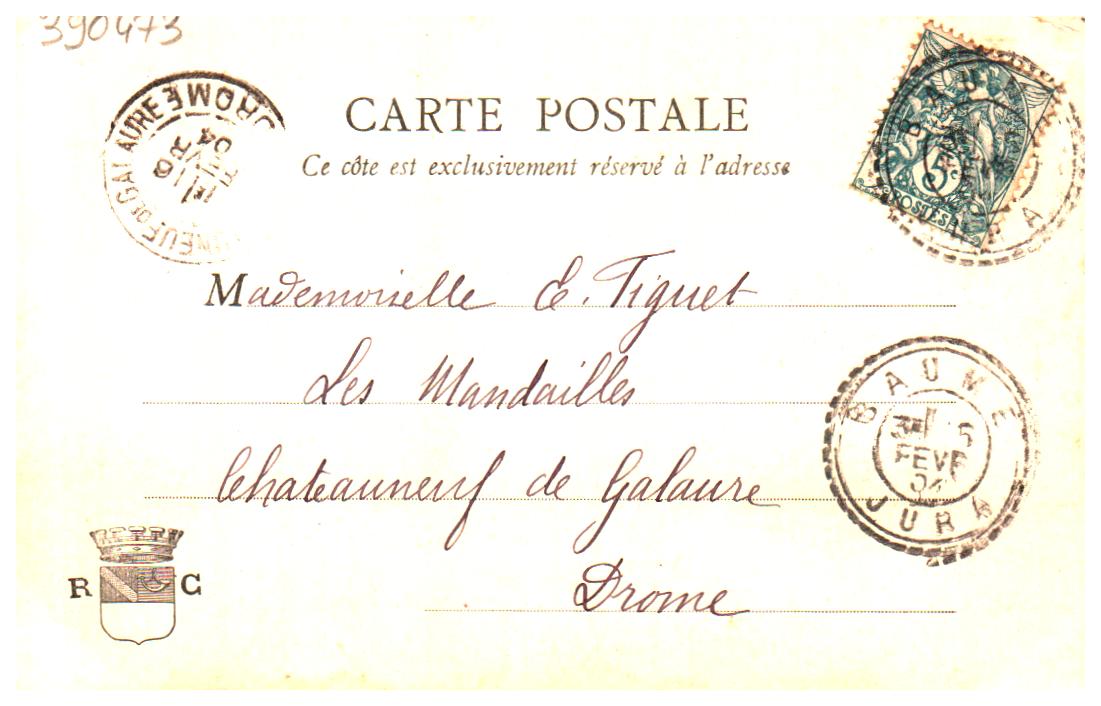 390473
CARTE POSTALE
Ce côte est exclusivement réservé à l'adresse
5c
POSTES
Mademoiselle E. Tiguet
Les Mandailles
Chateauneuf de Galaure
Drome
BAUME
5
FEVR
04
JURA
NEUF-DE-GALAURE DROME
04
R G